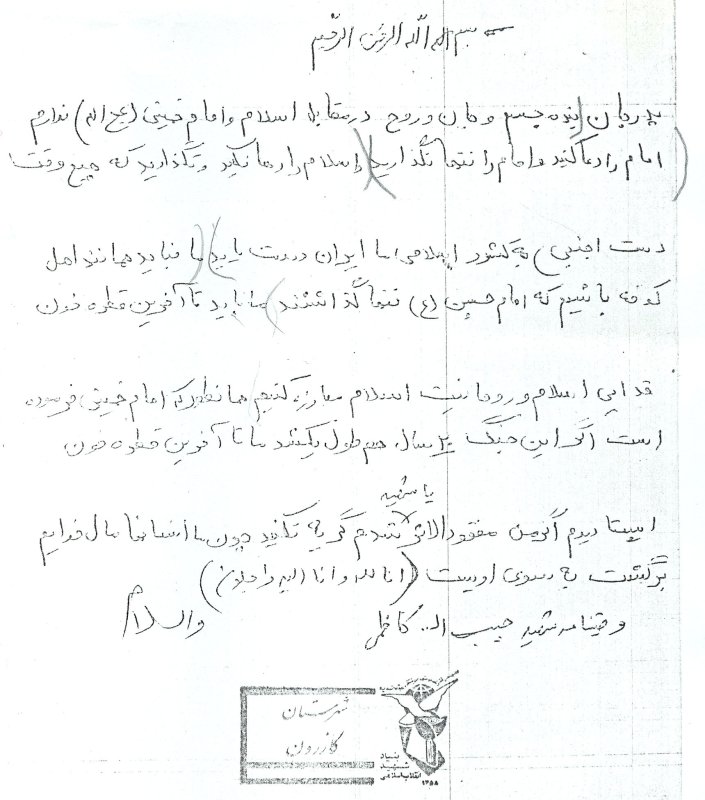 بسم الله الله الرحمن الرحیم
پدرجان اینده جسم و جان و روح در مقابل اسلام و امام خمینی (عج الله) ندارم
امام را دعا کنید و امام را تنها نگذارید) (اسلام را رها نکنید و نگذارید که هیچ وقت
دست اجنبی) به کشور اسلامی ما ایران دست یابد) (ما نباید همانند اهل
کوفه باشیم که امام حسین (ع) تنها گذاشتند) ما باید تا آخرین قطره خون
فدایی اسلام و روحانیت اسلام مبارزه کنیم همانطور که امام خمینی فرموده
است اگر این جنگ ۲۰ سال هم طول بکشد ما تا آخرین قطره خون
یا شهید
پدرم اگر من مفقودالاثر شدم گریه نکنید چون ما انسانها مال خداییم
برگشت به سوی اوست (انا لله و انا الیه راجعون)
وصیتنامه شهید حبیب الله کاظمی والسلام
شهرستان
کازرون
بنیاد
شهید
انقلاب اسلامی
۱۳۵۸